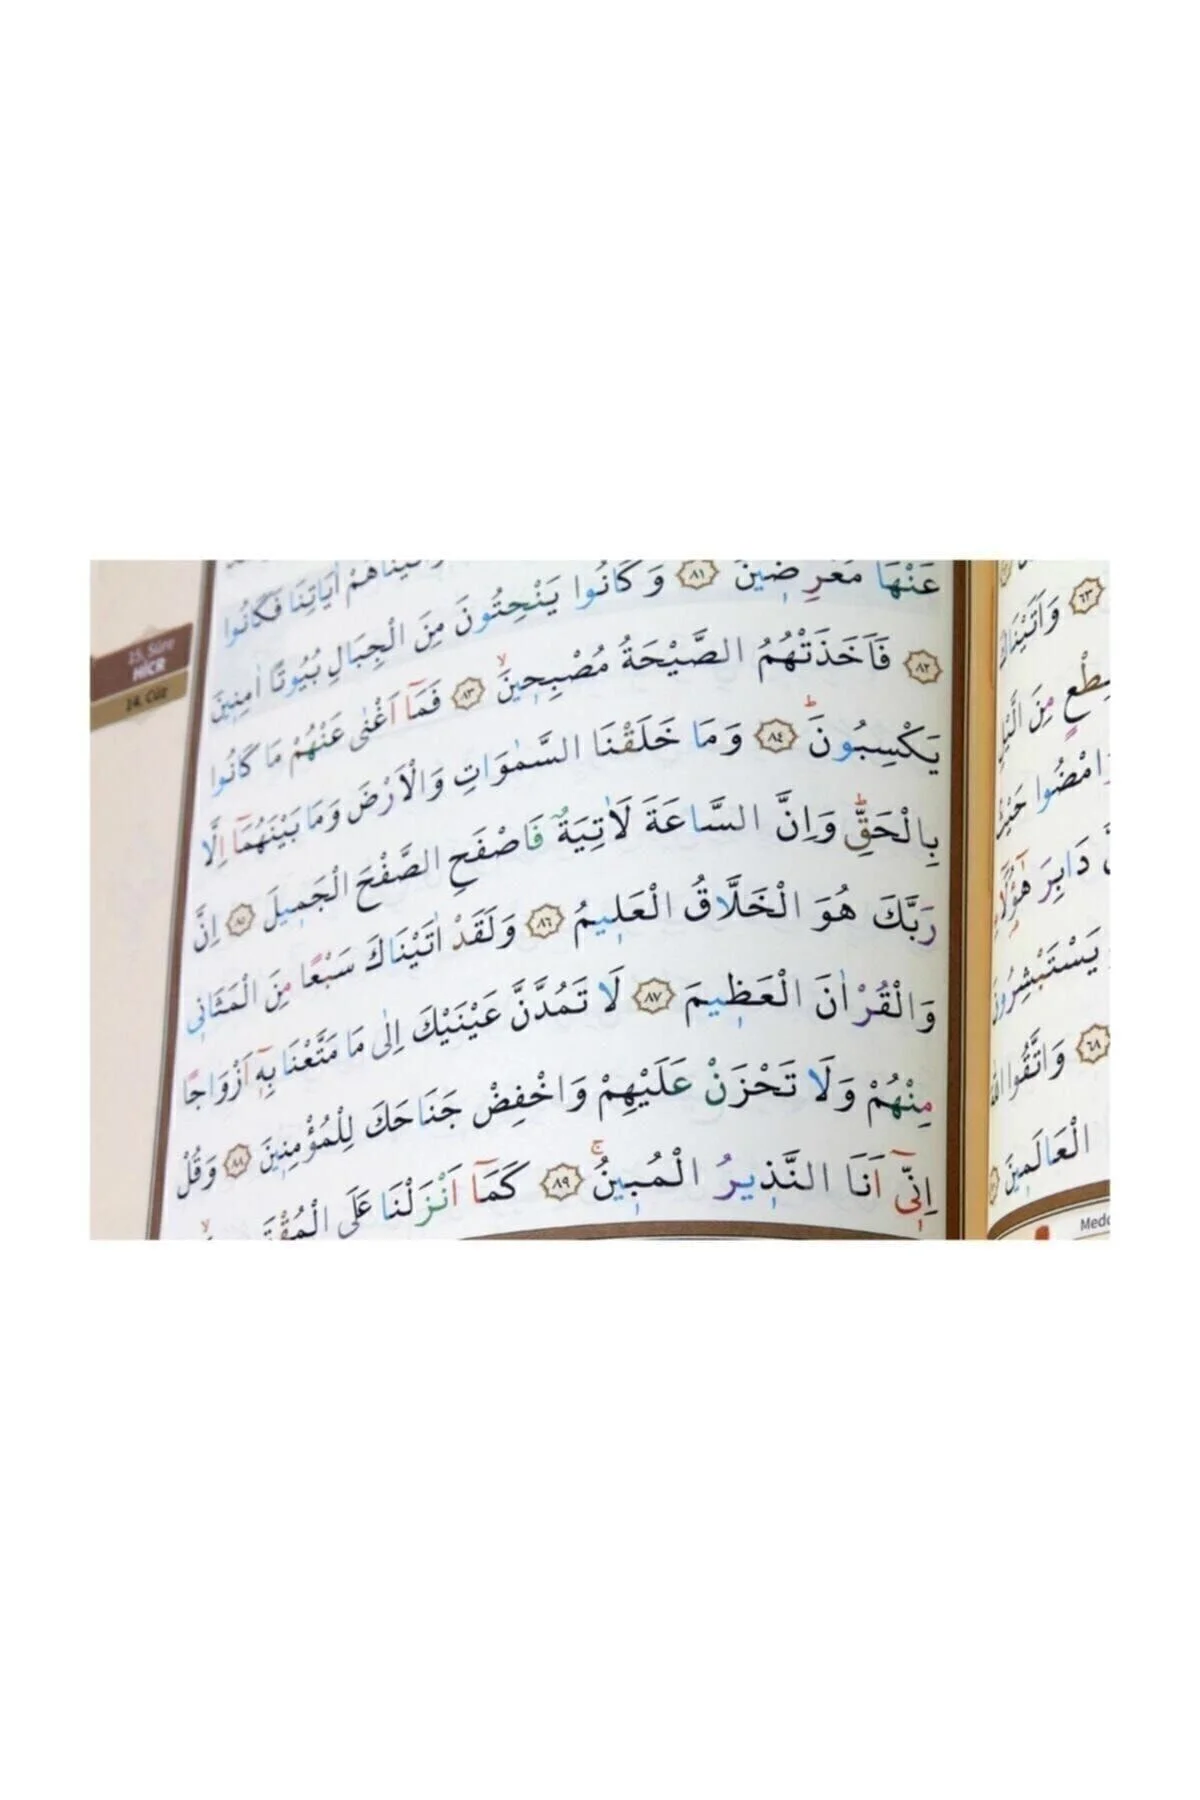 اٰيَاتِنَا فَكَانُوا
عَنْهَا مُعْرِضٖينَ ﴿٨١﴾ وَكَانُوا يَنْحِتُونَ مِنَ الْجِبَالِ بُيُوتًا اٰمِنٖينَ
﴿٨٢﴾ فَاَخَذَتْهُمُ الصَّيْحَةُ مُصْبِحٖينَۙ ﴿٨٣﴾ فَمَٓا اَغْنٰى عَنْهُمْ مَا كَانُوا
يَكْسِبُونَۜ ﴿٨٤﴾ وَمَا خَلَقْنَا السَّمٰوَاتِ وَالْاَرْضَ وَمَا بَيْنَهُمَٓا اِلَّا
بِالْحَقِّۜ وَاِنَّ السَّاعَةَ لَاٰتِيَةٌ فَاصْفَحِ الصَّفْحَ الْجَمٖيلَ ﴿٨٥﴾ اِنَّ
رَبَّكَ هُوَ الْخَلَّاقُ الْعَلٖيمُ ﴿٨٦﴾ وَلَقَدْ اٰتَيْنَاكَ سَبْعًا مِنَ الْمَثَانٖى
وَالْقُرْاٰنَ الْعَظٖيمَ ﴿٨٧﴾ لَا تَمُدَّنَّ عَيْنَيْكَ اِلٰى مَا مَتَّعْنَا بِهٖٓ اَزْوَاجًا
مِنْهُمْ وَلَا تَحْزَنْ عَلَيْهِمْ وَاخْفِضْ جَنَاحَكَ لِلْمُؤْمِنٖينَ ﴿٨٨﴾ وَقُلْ
اِنّٖٓى اَنَا النَّذٖيرُ الْمُبٖينُۚ ﴿٨٩﴾ كَمَٓا اَنْزَلْنَا عَلَى
15. Sûre
HİCR
14. Cüz
﴿٦٣﴾ وَاَتَيْنَاكَ
مِنَ الَّيْلِ
وَامْضُوا حَيْثُ
دَابِرَ هٰٓؤُلَٓاءِ
يَسْتَبْشِرُونَ
﴿٦٨﴾ وَاتَّقُوا اللّٰهَ
الْعَالَمٖينَ